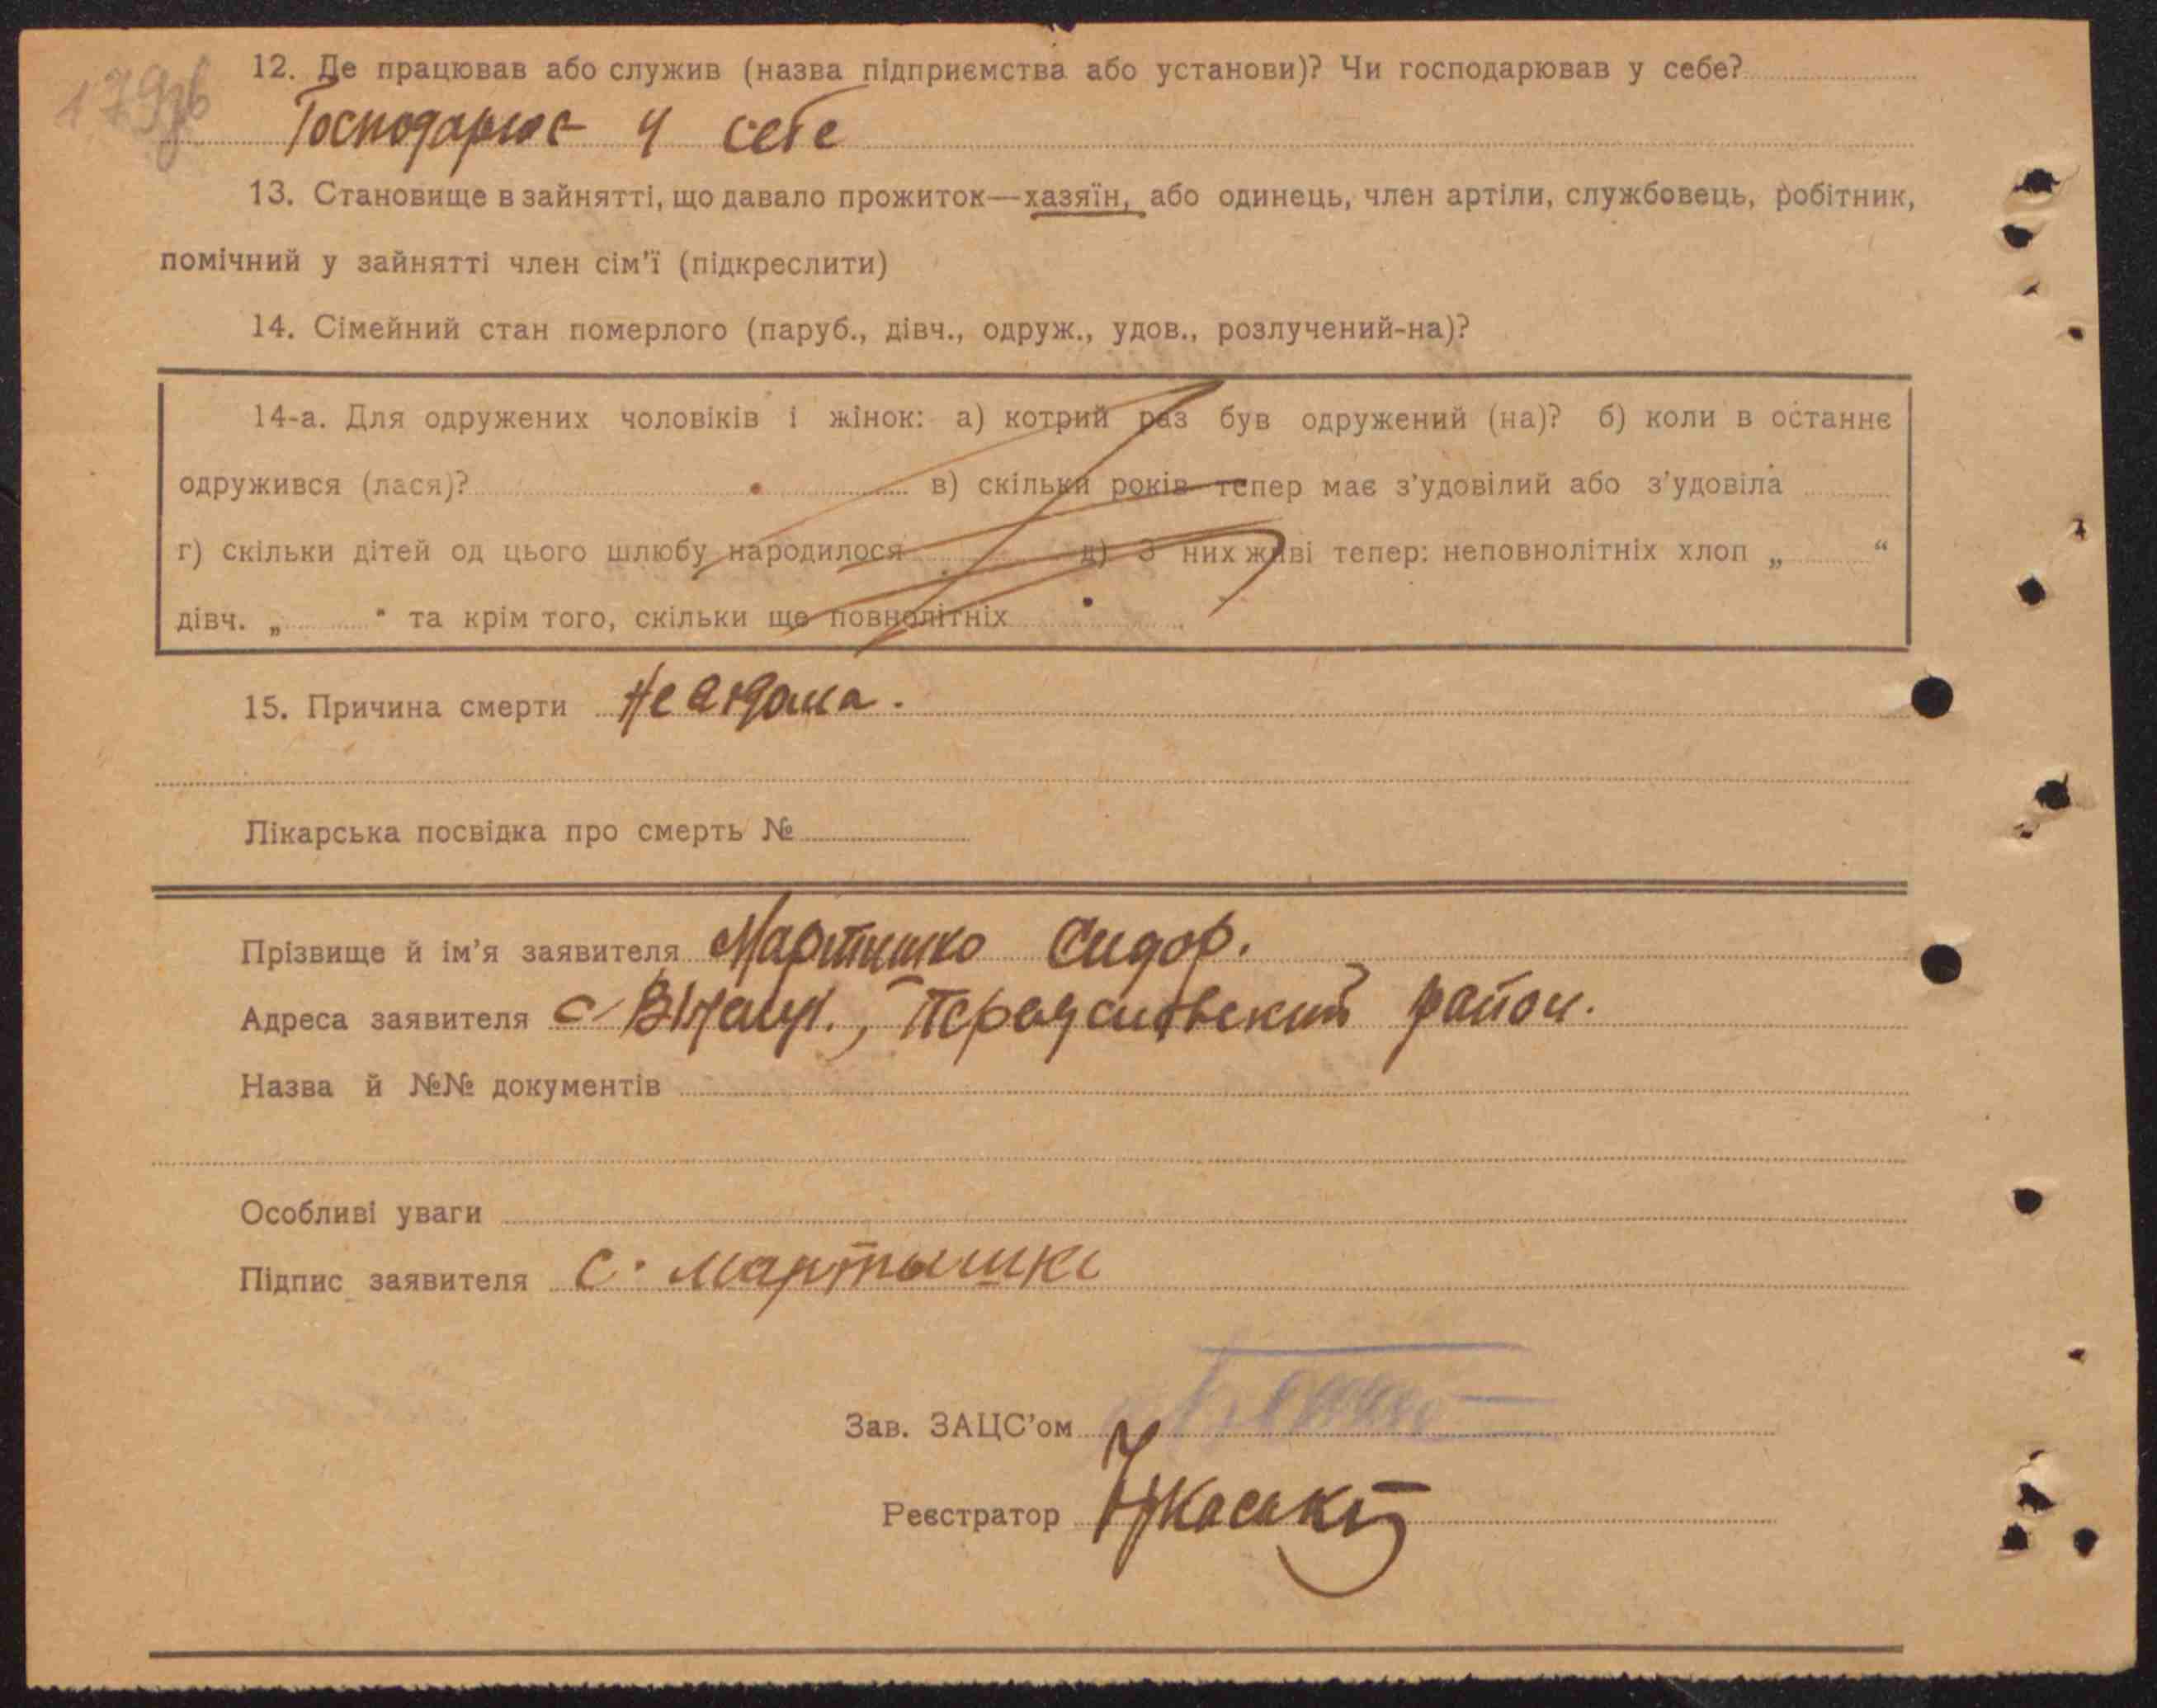 179зв
12. Де працював або служив (назва підприємства або установи)? Чи господарював у себе?
Господарює у себе
13. Становище в зайнятті, що давало прожиток—хазяїн, або одинець, член артіли, службовець, робітник,
помічний у зайнятті член сім'ї (підкреслити)
14. Сімейний стан померлого (паруб., дівч., одруж., удов., розлучений-на)?
14-а. Для одружених чоловіків і жінок: а) котрий раз був одружений (на)? б) коли в останнє
одружився (лася)? в) скільки років тепер має з'удовілий або з'удовіла
г) скільки дітей од цього шлюбу народилося д) З них живі тепер: неповнолітніх хлоп „ “
дівч. „ “ та крім того, скільки ще повнолітніх
15. Причина смерти Невідома.
Лікарська посвідка про смерть №
Прізвище й ім'я заявителя Мартишко Сидор.
Адреса заявителя с. Переяславський район.
Назва й №№ документів
Особливі уваги
Підпис заявителя С. Мартышко
Зав. ЗАЦС'ом
Реєстратор